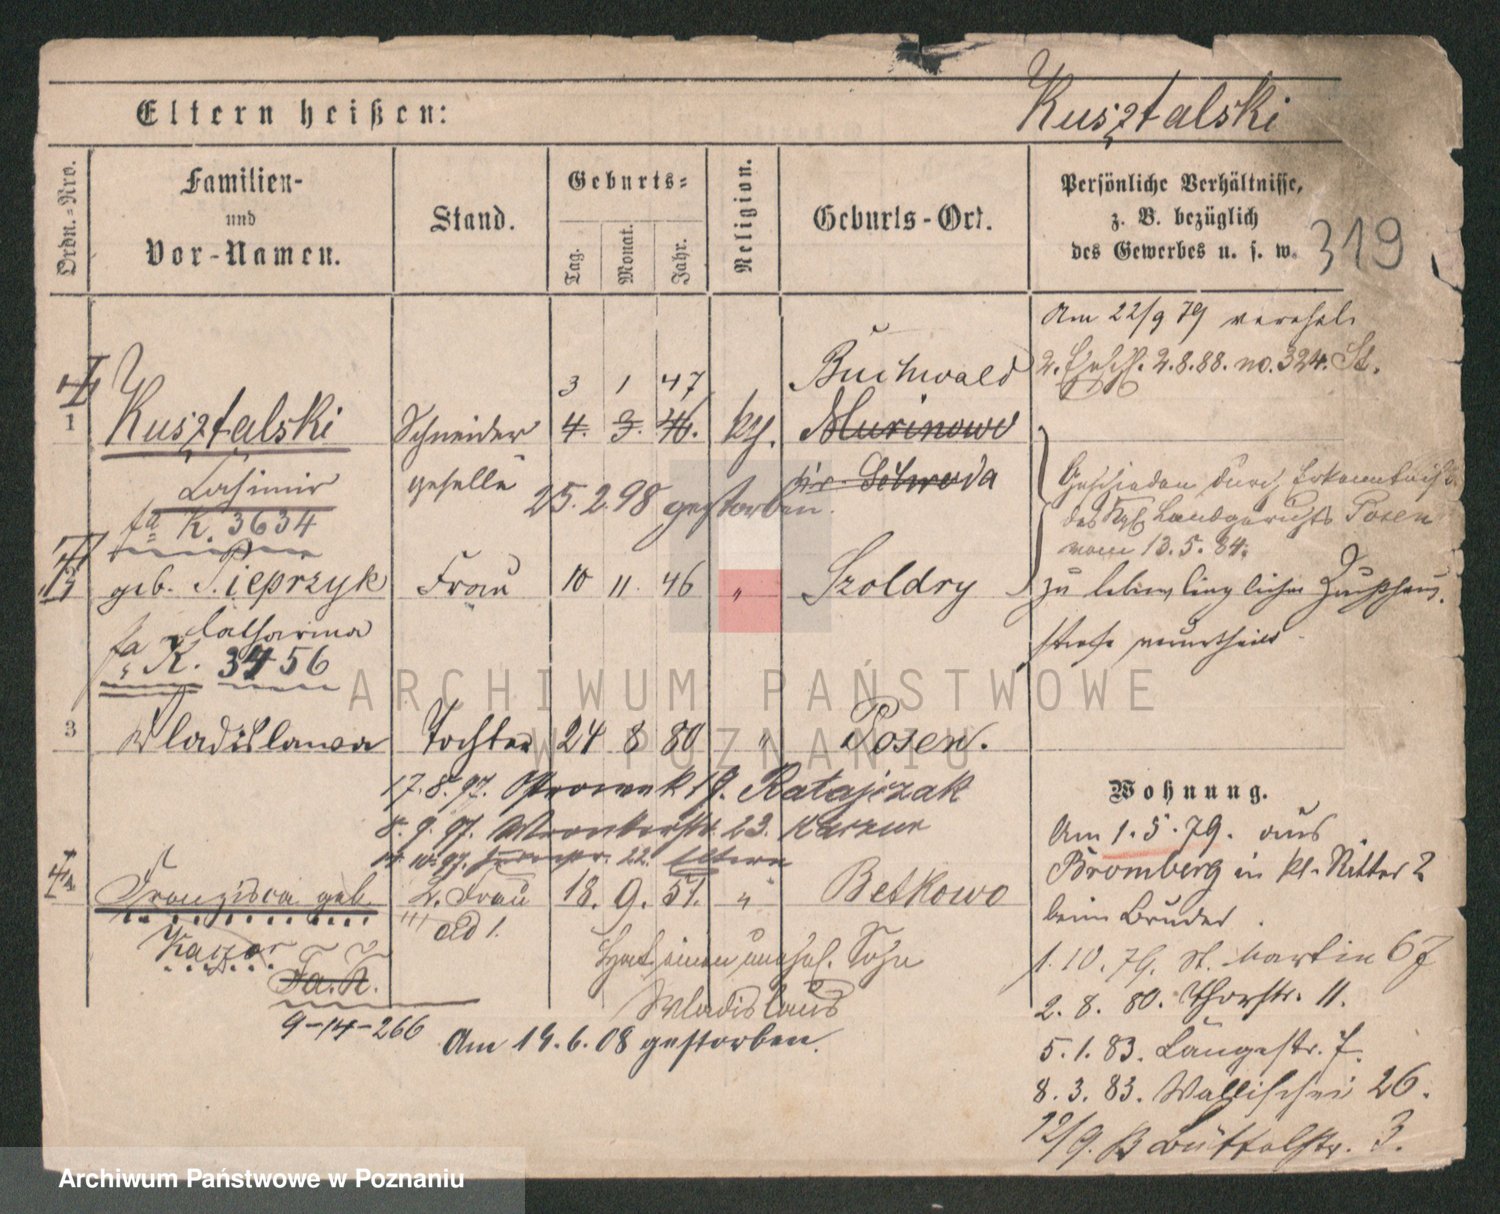 Eltern heißen:
Kusztalski
Ordn.-Nro.
Familien-
und
Vor-Namen.
Stand.
Geburts-
Tag.
Monat.
Jahr.
Religion.
Geburts-Ort.
Persönliche Verhältnisse,
z. B. bezüglich
des Gewerbes u. s. w.
319
Am 22/9 79 verehel.
2. Ehesch. 2.8.88. no. 324. St.
3 1 47 Buchwald
1 Kusztalski Schneider 4. 3. 46. kth. Murinowo
Casimir geselle kr. Schroda
25.2.98 gestorben.
fa K. 3634
Geschieden durch Erkenntniß
des Kgl. Landgerichts Posen
vom 13.5.84.
geb. Pieprzyk Frau 10 11. 46 " Szoldry
Catharina
fa K. 3456
zu lebenslänglicher Zuchthaus
strafe verurtheilt
3 Wladislawa Tochter 24 8 80 " Posen.
17.8.97. 19. Ratajczak
8.9.97. Wronkerstr. 23. Kaczur
22. Eltern
Franziska geb. 2. Frau 18. 9. 51. " Betkowo
ad 1.
Hat einen unehel. Sohn
Wladislaus
Fa. K.
9-14-266
Am 14.6.08 gestorben.
Wohnung.
Am 1.5.79. aus
Bromberg in kl. Ritter 2
beim Bruder.
1.10.79. St. Martin 67
2.8.80. Thorstr. 11.
5.1.83. Langestr. 7.
8.3.83. Wallischei 26.
12/9. Büttelstr. 3.
ARCHIWUM PAŃSTWOWE
W POZNANIU
Archiwum Państwowe w Poznaniu